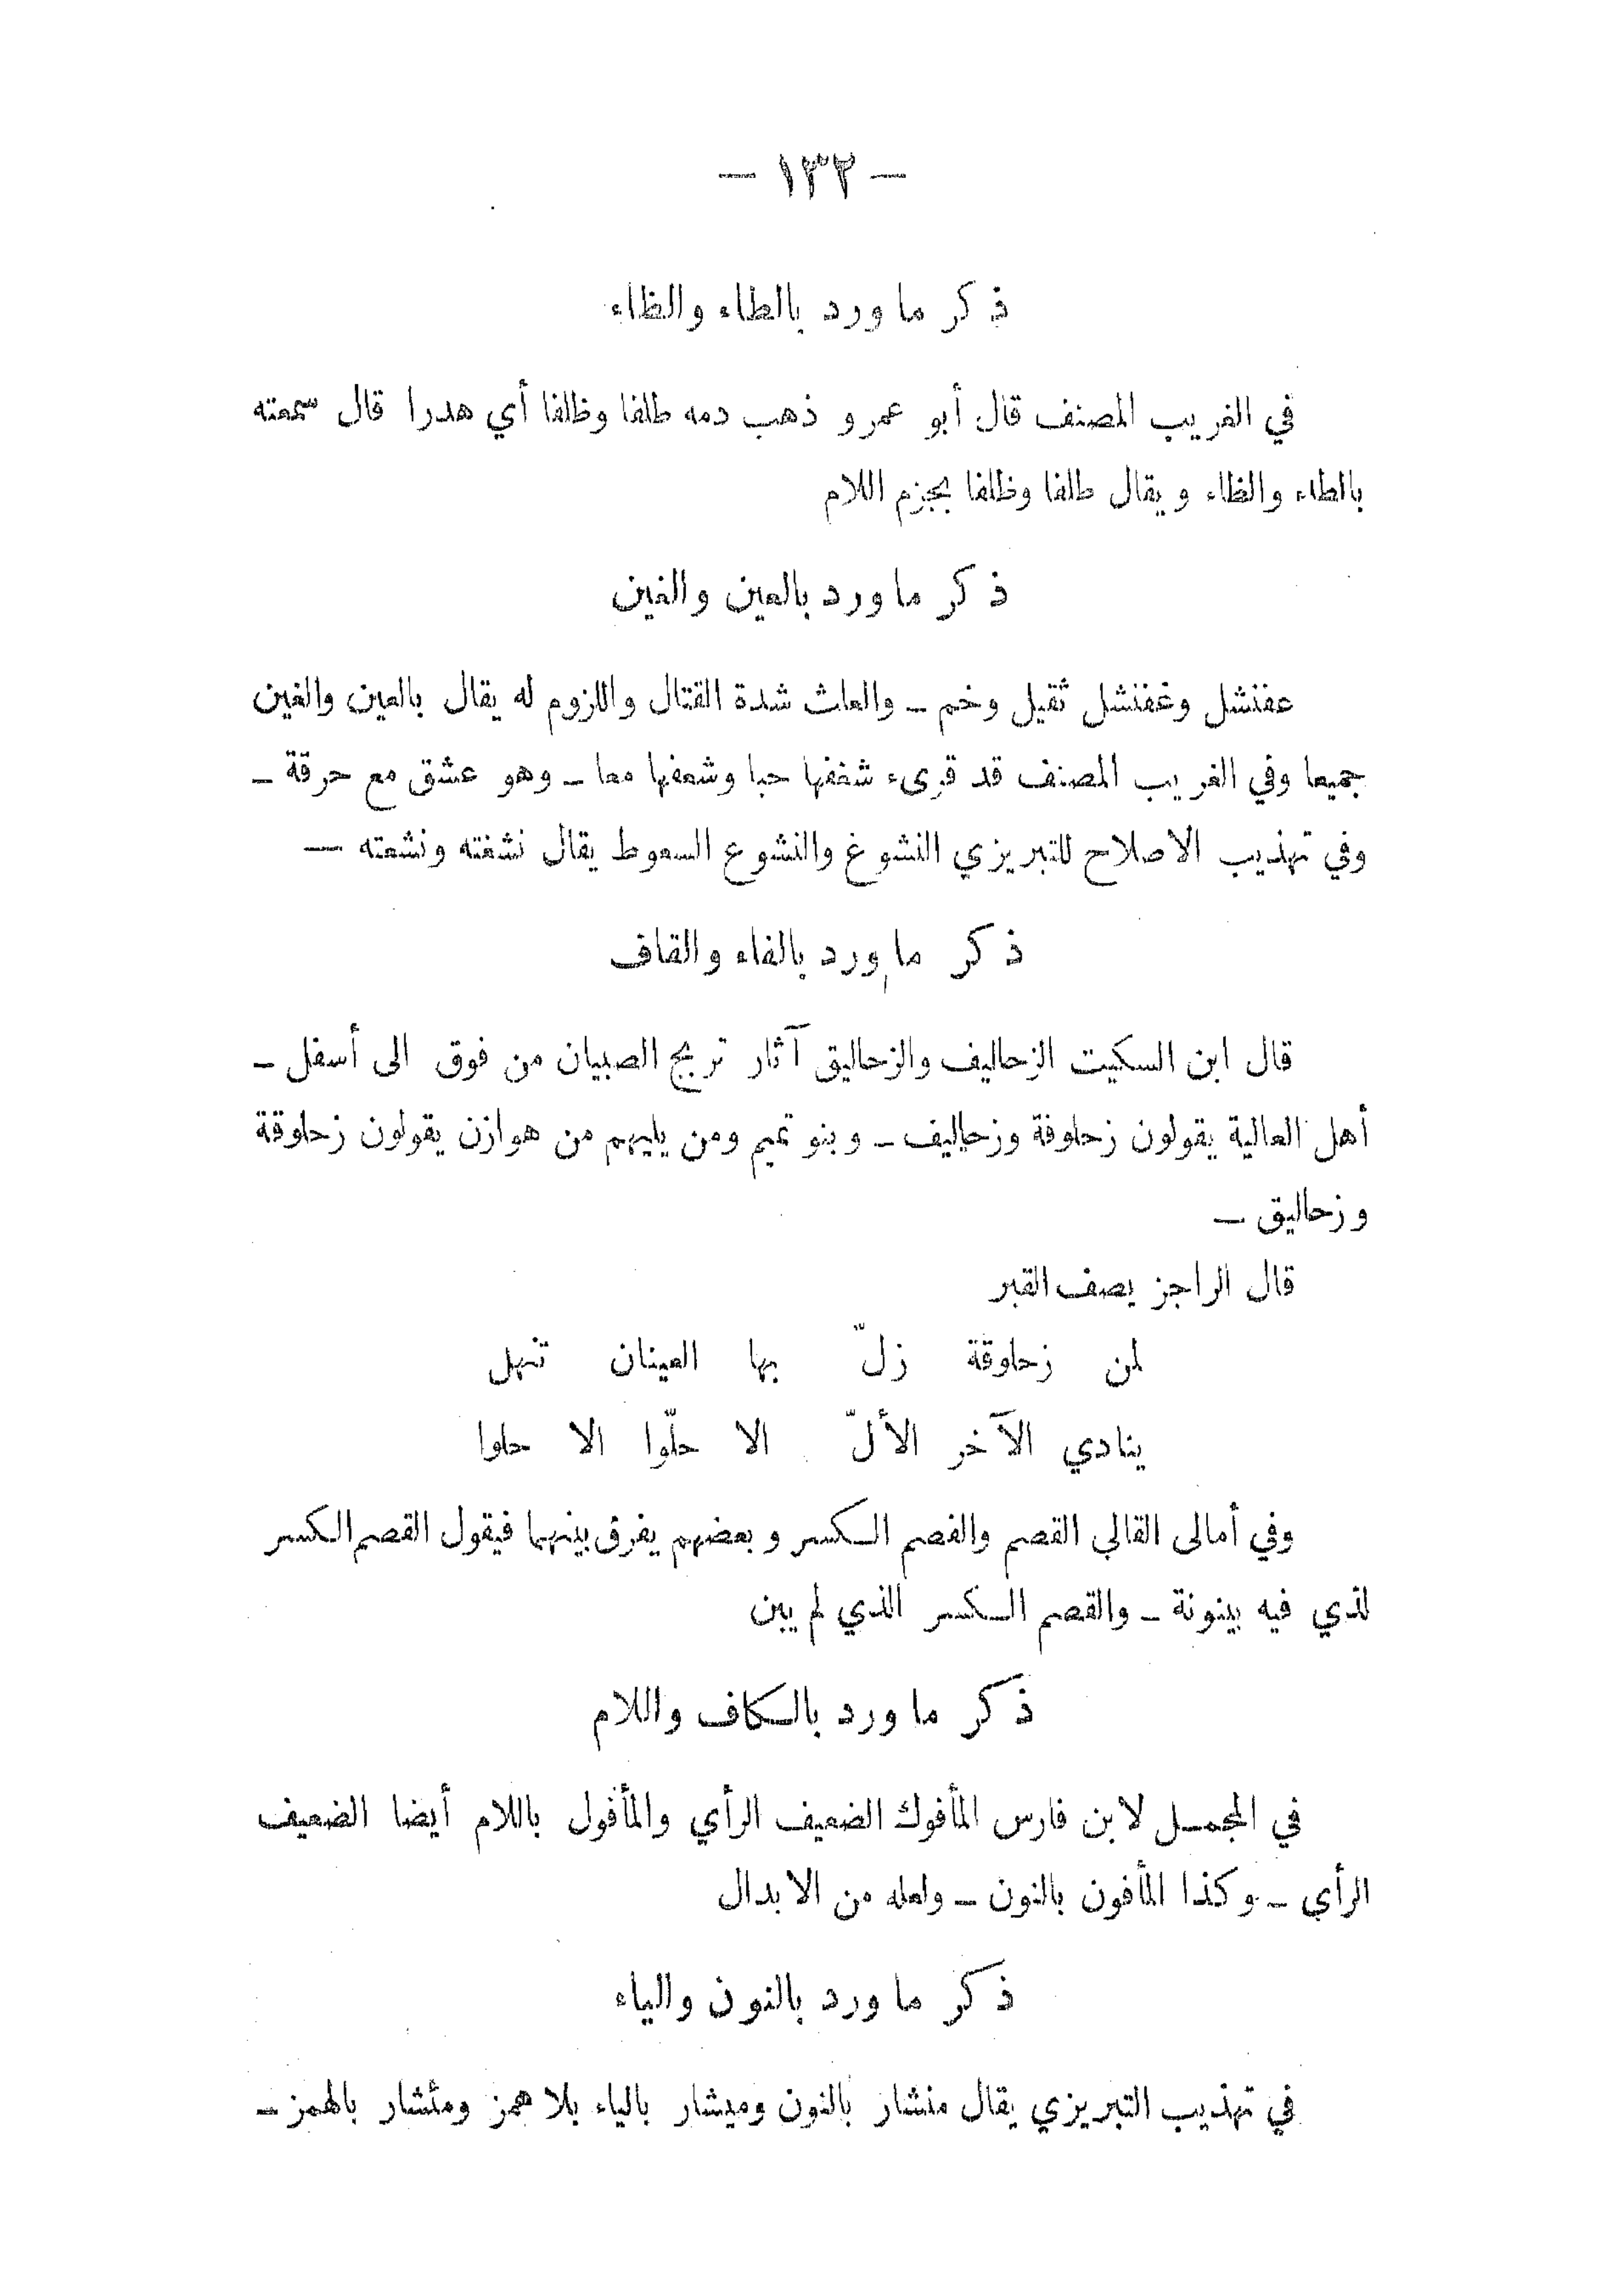 — ١٣٢ —
ذكر ما ورد بالطاء والظاء
في الغريب المصنف قال أبو عمرو ذهب دمه طلفا وظلفا أي هدرا قال سمعته
بالطاء والظاء ويقال طلفا وظلفا بجزم اللام
ذكر ما ورد بالعين والغين
عفنشل وغفنشل ثقيل وخم — والعلث شدة القتال واللزوم له يقال بالعين والغين
جميعا وفي الغريب المصنف قد قرىء شغفها حبا وشعفها معا — وهو عشق مع حرقة —
وفي تهذيب الاصلاح للتبريزي النشوغ والنشوع السعوط يقال نشغته ونشعته —
ذكر ما ورد بالفاء والقاف
قال ابن السكيت الزحاليف والزحاليق آثار تربج الصبيان من فوق الى أسفل —
أهل العالية يقولون زحلوفة وزحاليف — وبنو تميم ومن يليهم من هوازن يقولون زحلوقة
وزحاليق —
قال الراجز يصف القبر
لمن زحلوقة زلّ بها العينان تنهل
ينادي الآخر الألّ الا حلّوا الا حلوا
وفي أمالى القالي القصم والفصم الكسر وبعضهم يفرق بينهما فيقول القصم الكسر
لذي فيه بينونة — والفصم الكسر الذي لم يبن
ذكر ما ورد بالكاف واللام
في المجمل لابن فارس المأفوك الضعيف الرأي والمأفول باللام أيضا الضعيف
الرأي — وكذا المأفون بالنون — ولعله من الابدال
ذكر ما ورد بالنون والياء
في تهذيب التبريزي يقال منشار بالنون وميشار بالياء بلا همز ومئشار بالهمز —